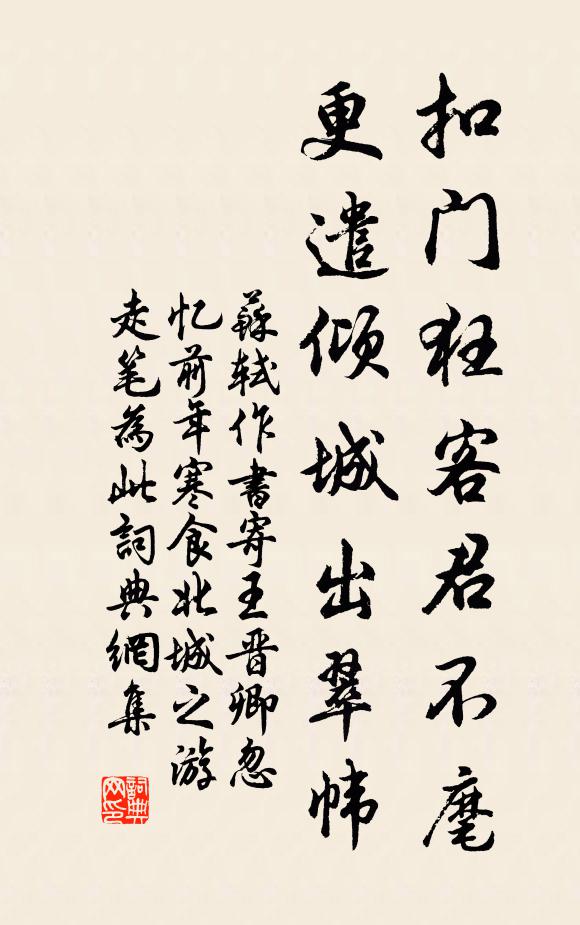 扣门狂客君不麾
更遣倾城出翠帏
蘇軾作書寄王晋卿忽
忆前年寒食北城之游
走笔為此詞典網集
詞典网印